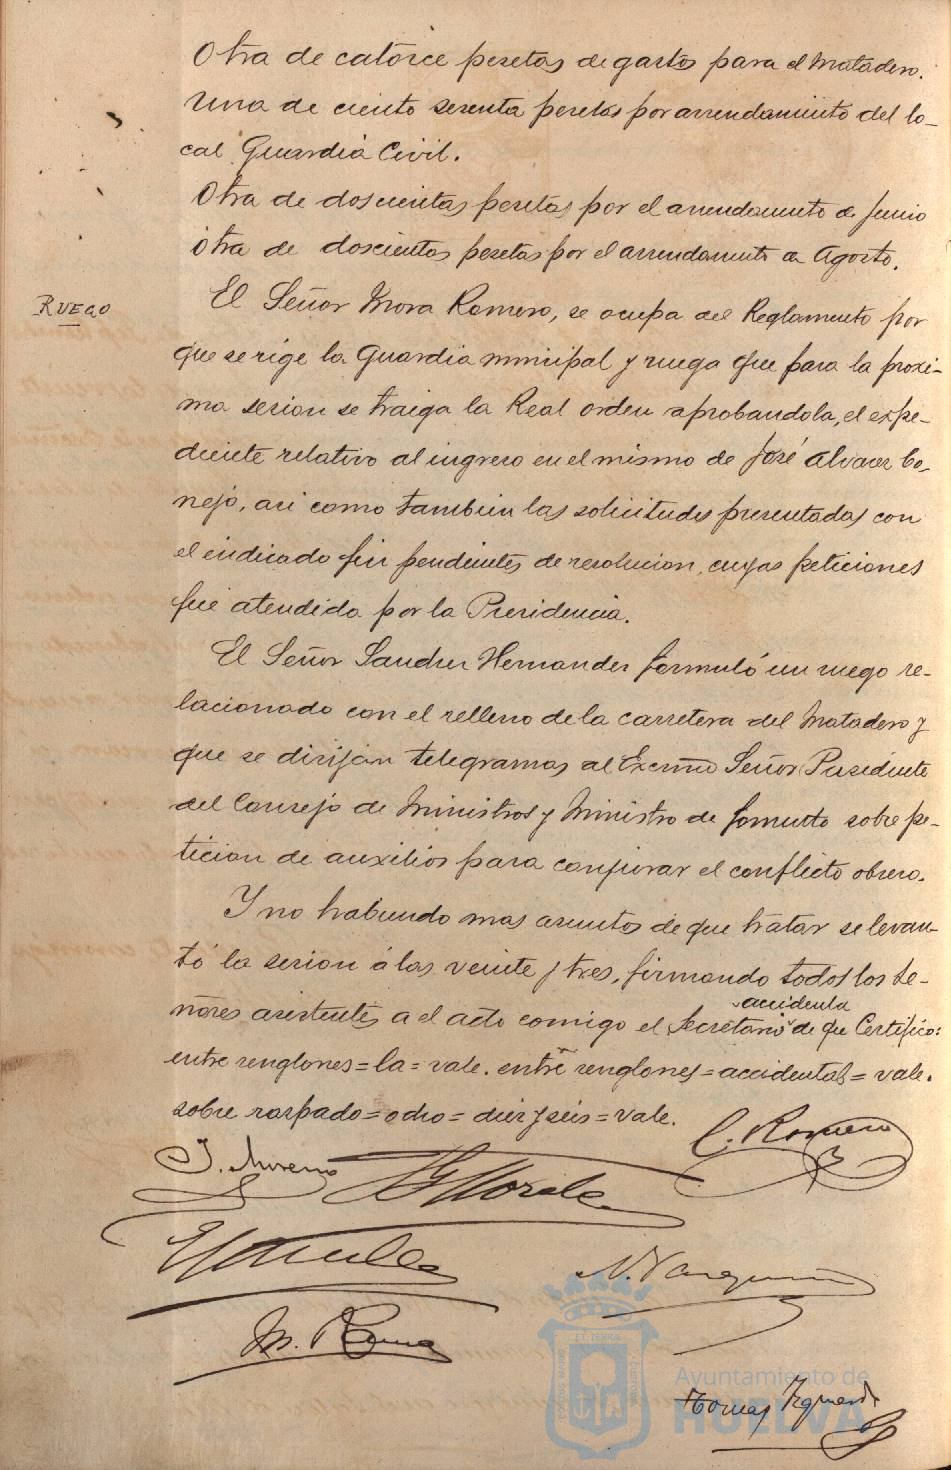 Otra de catorce pesetas de gastos para el Matadero.
Una de ciento sesenta pesetas por arrendamiento del lo-
cal Guardia Civil.
Otra de doscientas pesetas por el arrendamiento de Junio
otra de doscientos pesetas por el arrendamento de Agosto.
RUEGO
El Señor Mora Romero, se ocupa del Reglamento por
que se rige la Guardia municipal y ruega que para la proxi-
ma sesion se traiga la Real orden aprobandola, el expe-
diente relativo al ingreso en el mismo de José Alvarez Co-
nejo, asi como tambien las solicitudes presentadas con
el indicado fin pendientes de resolucion, cuyas peticiones
fue atendido por la Presidencia.
El Señor Sanchez Hernandez formuló un ruego re-
lacionado con el relleno de la carretera del Matadero y
que se dirijan telegramas al Excmo Señor Presidente
del Consejo de Ministros y Ministro de Fomento sobre pe-
ticion de auxilios para conjurar el conflicto obrero.
Y no habiendo mas asuntos de que tratar se levan-
tó la sesion á las veinte y tres, firmando todos los se-
accidental
ñores asistentes a el acto comigo el Secretario de que Certifico:
entre renglones=la=vale. entre renglones=accidental=vale.
sobre raspado=ocho=diez y seis=vale.
C. Romero
J. Moreno
Morales
M. Romero
Tomas Izquierdo
ET TERRA
Ayuntamiento de
HUELVA